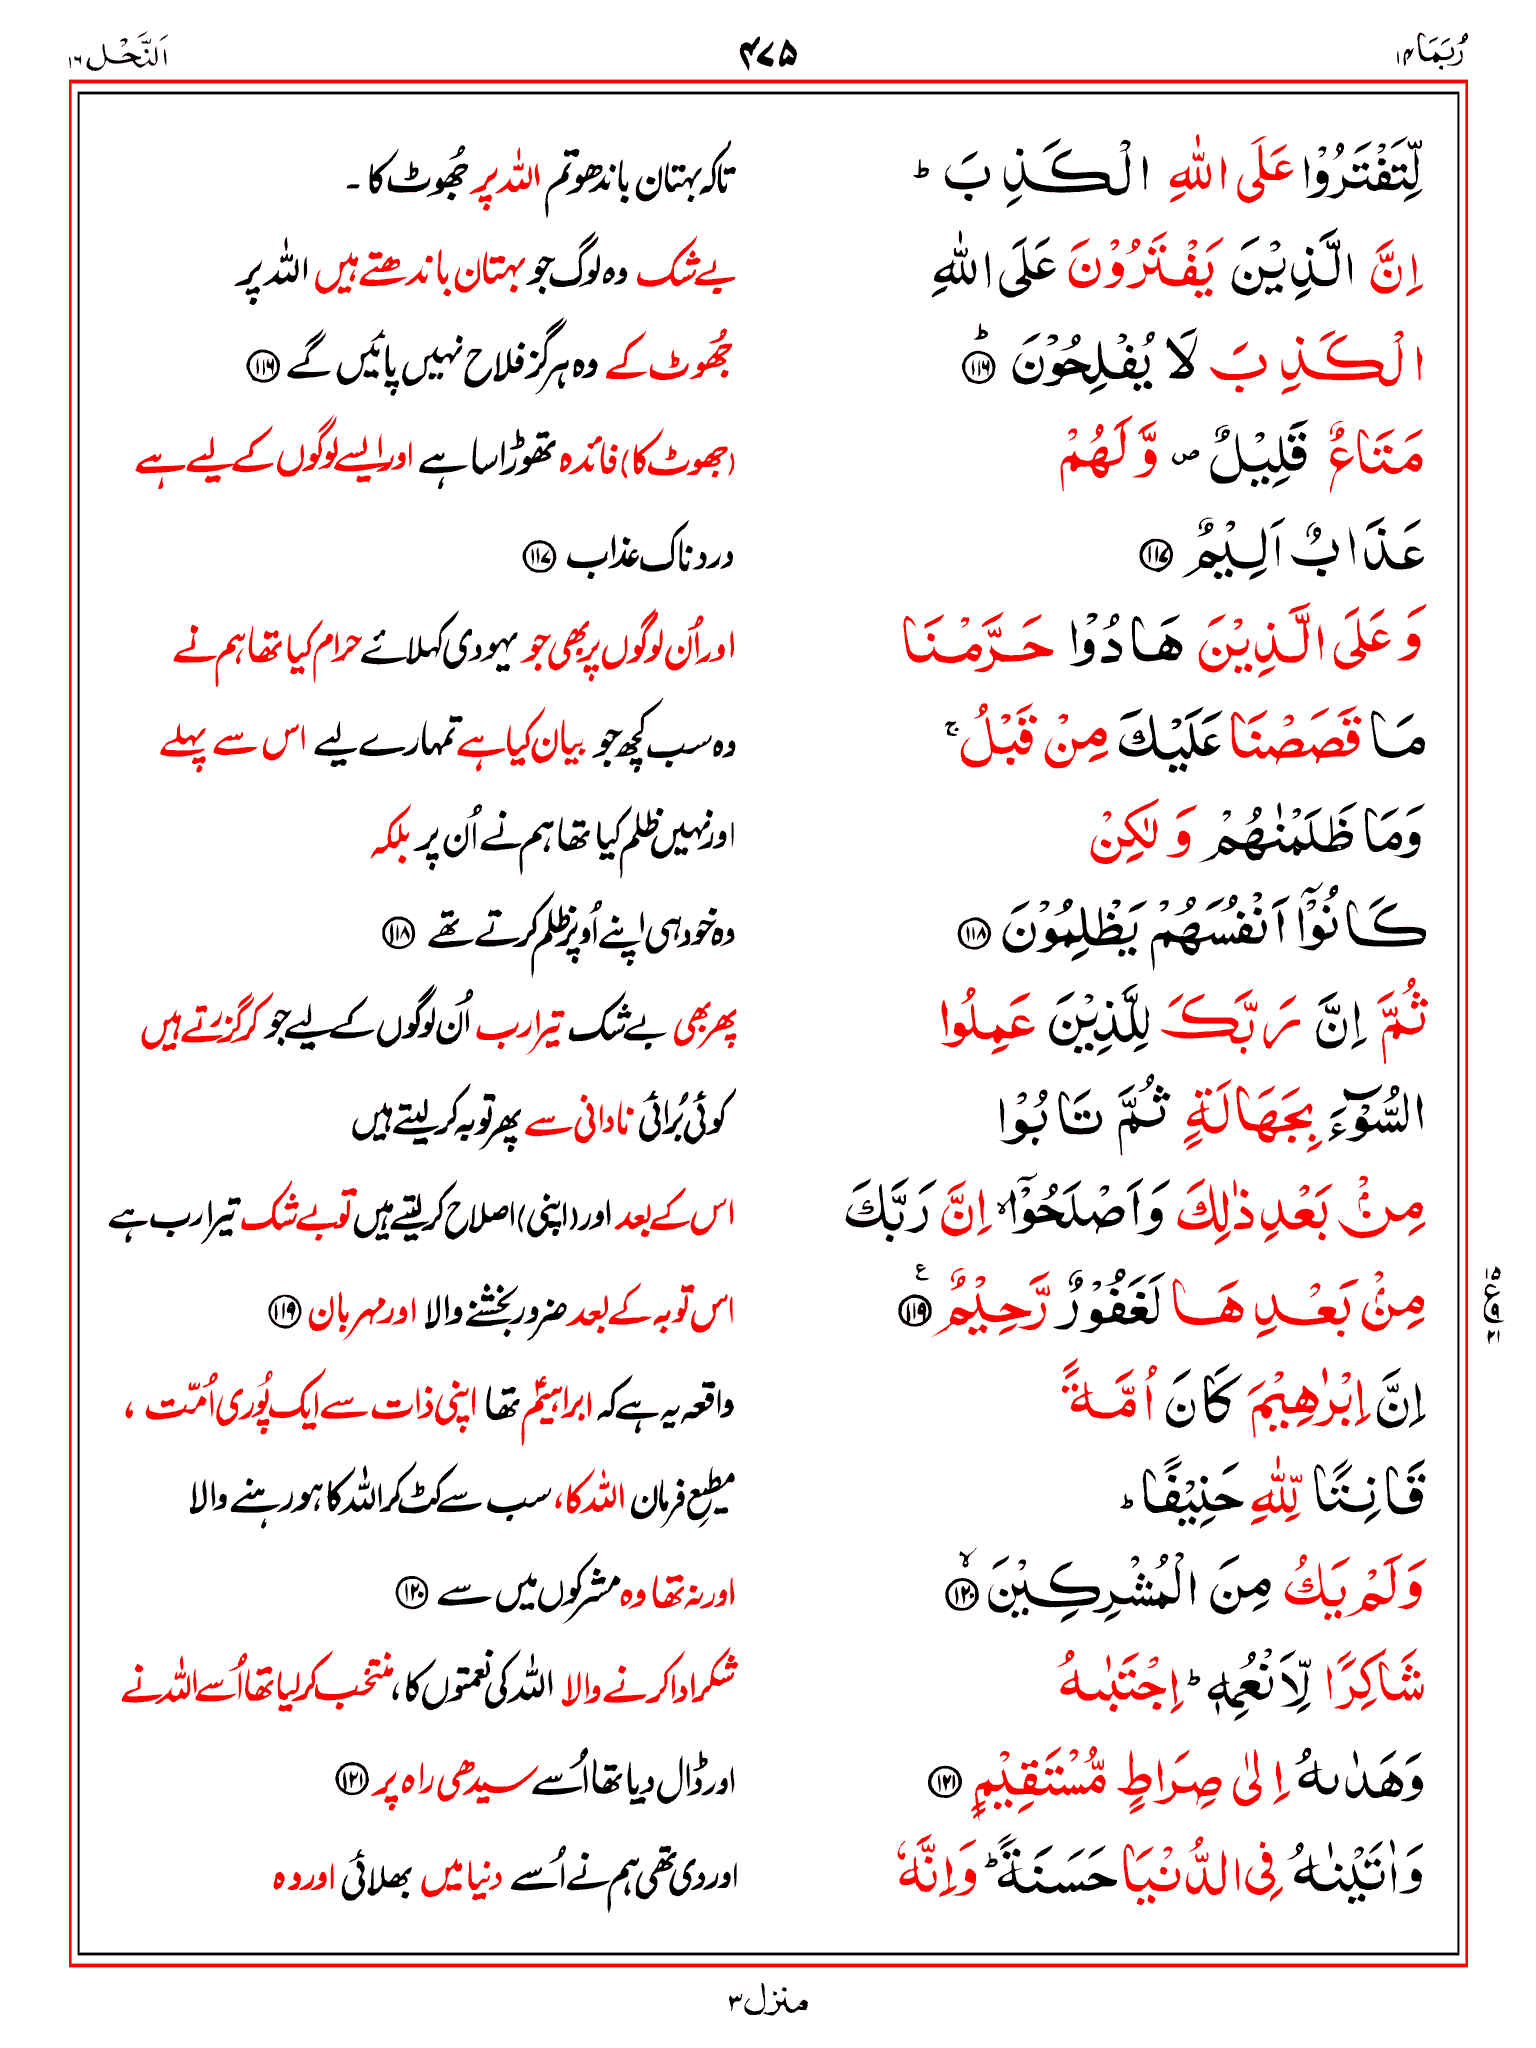 رُبَمَا ۱۴ ۴۷۵ اَلنَّحْل ۱۶
لِّتَفْتَرُوْا عَلَى اللّٰهِ الْكَذِبَ ؕ تاکہ بہتان باندھو تم اللہ پر جُھوٹ کا ۔
اِنَّ الَّذِيْنَ يَفْتَرُوْنَ عَلَى اللّٰهِ بے شک وہ لوگ جو بہتان باندھتے ہیں اللہ پر
الْكَذِبَ لَا يُفْلِحُوْنَ ؕ ﴿۱۱۶﴾ جُھوٹ کے وہ ہرگز فلاح نہیں پائیں گے ﴿۱۱۶﴾
مَتَاعٌ قَلِيْلٌ ۪ وَّ لَهُمْ (جھوٹ کا) فائدہ تھوڑا سا ہے اور ایسے لوگوں کے لیے ہے
عَذَابٌ اَلِيْمٌ ﴿۱۱۷﴾ دردناک عذاب ﴿۱۱۷﴾
وَ عَلَى الَّذِيْنَ هَادُوْا حَرَّمْنَا اور اُن لوگوں پر بھی جو یہودی کہلائے حرام کیا تھا ہم نے
مَا قَصَصْنَا عَلَيْكَ مِنْ قَبْلُ ۚ وہ سب کچھ جو بیان کیا ہے تمہارے لیے اس سے پہلے
وَمَا ظَلَمْنٰهُمْ وَ لٰكِنْ اور نہیں ظلم کیا تھا ہم نے اُن پر بلکہ
كَانُوْۤا اَنْفُسَهُمْ يَظْلِمُوْنَ ﴿۱۱۸﴾ وہ خود ہی اپنے اُوپر ظلم کرتے تھے ﴿۱۱۸﴾
ثُمَّ اِنَّ رَبَّكَ لِلَّذِيْنَ عَمِلُوا پھر بھی بے شک تیرا رب اُن لوگوں کے لیے جو کر گزرتے ہیں
السُّوْٓءَ بِجَهَالَةٍ ثُمَّ تَابُوْا کوئی بُرائی نادانی سے پھر توبہ کر لیتے ہیں
مِنْۢ بَعْدِ ذٰلِكَ وَ اَصْلَحُوْۤا ۙ اِنَّ رَبَّكَ اس کے بعد اور (اپنی) اصلاح کر لیتے ہیں تو بے شک تیرا رب ہے
مِنْۢ بَعْدِهَا لَغَفُوْرٌ رَّحِيْمٌ ﴿۱۱۹﴾ ع اس توبہ کے بعد ضرور بخشنے والا اور مہربان ﴿۱۱۹﴾
۱۵ ع ۹ ۲۱
اِنَّ اِبْرٰهِيْمَ كَانَ اُمَّةً واقعہ یہ ہے کہ ابراہیمؑ تھا اپنی ذات سے ایک پُوری اُمّت ،
قَانِتًا لِّلّٰهِ حَنِيْفًا ؕ مطیعِ فرمان اللہ کا، سب سے کٹ کر اللہ کا ہو رہنے والا
وَ لَمْ يَكُ مِنَ الْمُشْرِكِيْنَ ۙ ﴿۱۲۰﴾ اور نہ تھا وہ مشرکوں میں سے ﴿۱۲۰﴾
شَاكِرًا لِّاَنْعُمِهٖ ؕ اِجْتَبٰىهُ شکر ادا کرنے والا اللہ کی نعمتوں کا، منتخب کر لیا تھا اُسے اللہ نے
وَ هَدٰىهُ اِلٰى صِرَاطٍ مُّسْتَقِيْمٍ ﴿۱۲۱﴾ اور ڈال دیا تھا اُسے سیدھی راہ پر ﴿۱۲۱﴾
وَ اٰتَيْنٰهُ فِى الدُّنْيَا حَسَنَةً ؕ وَ اِنَّهٗ اور دی تھی ہم نے اُسے دنیا میں بھلائی اور وہ
منزل ۳